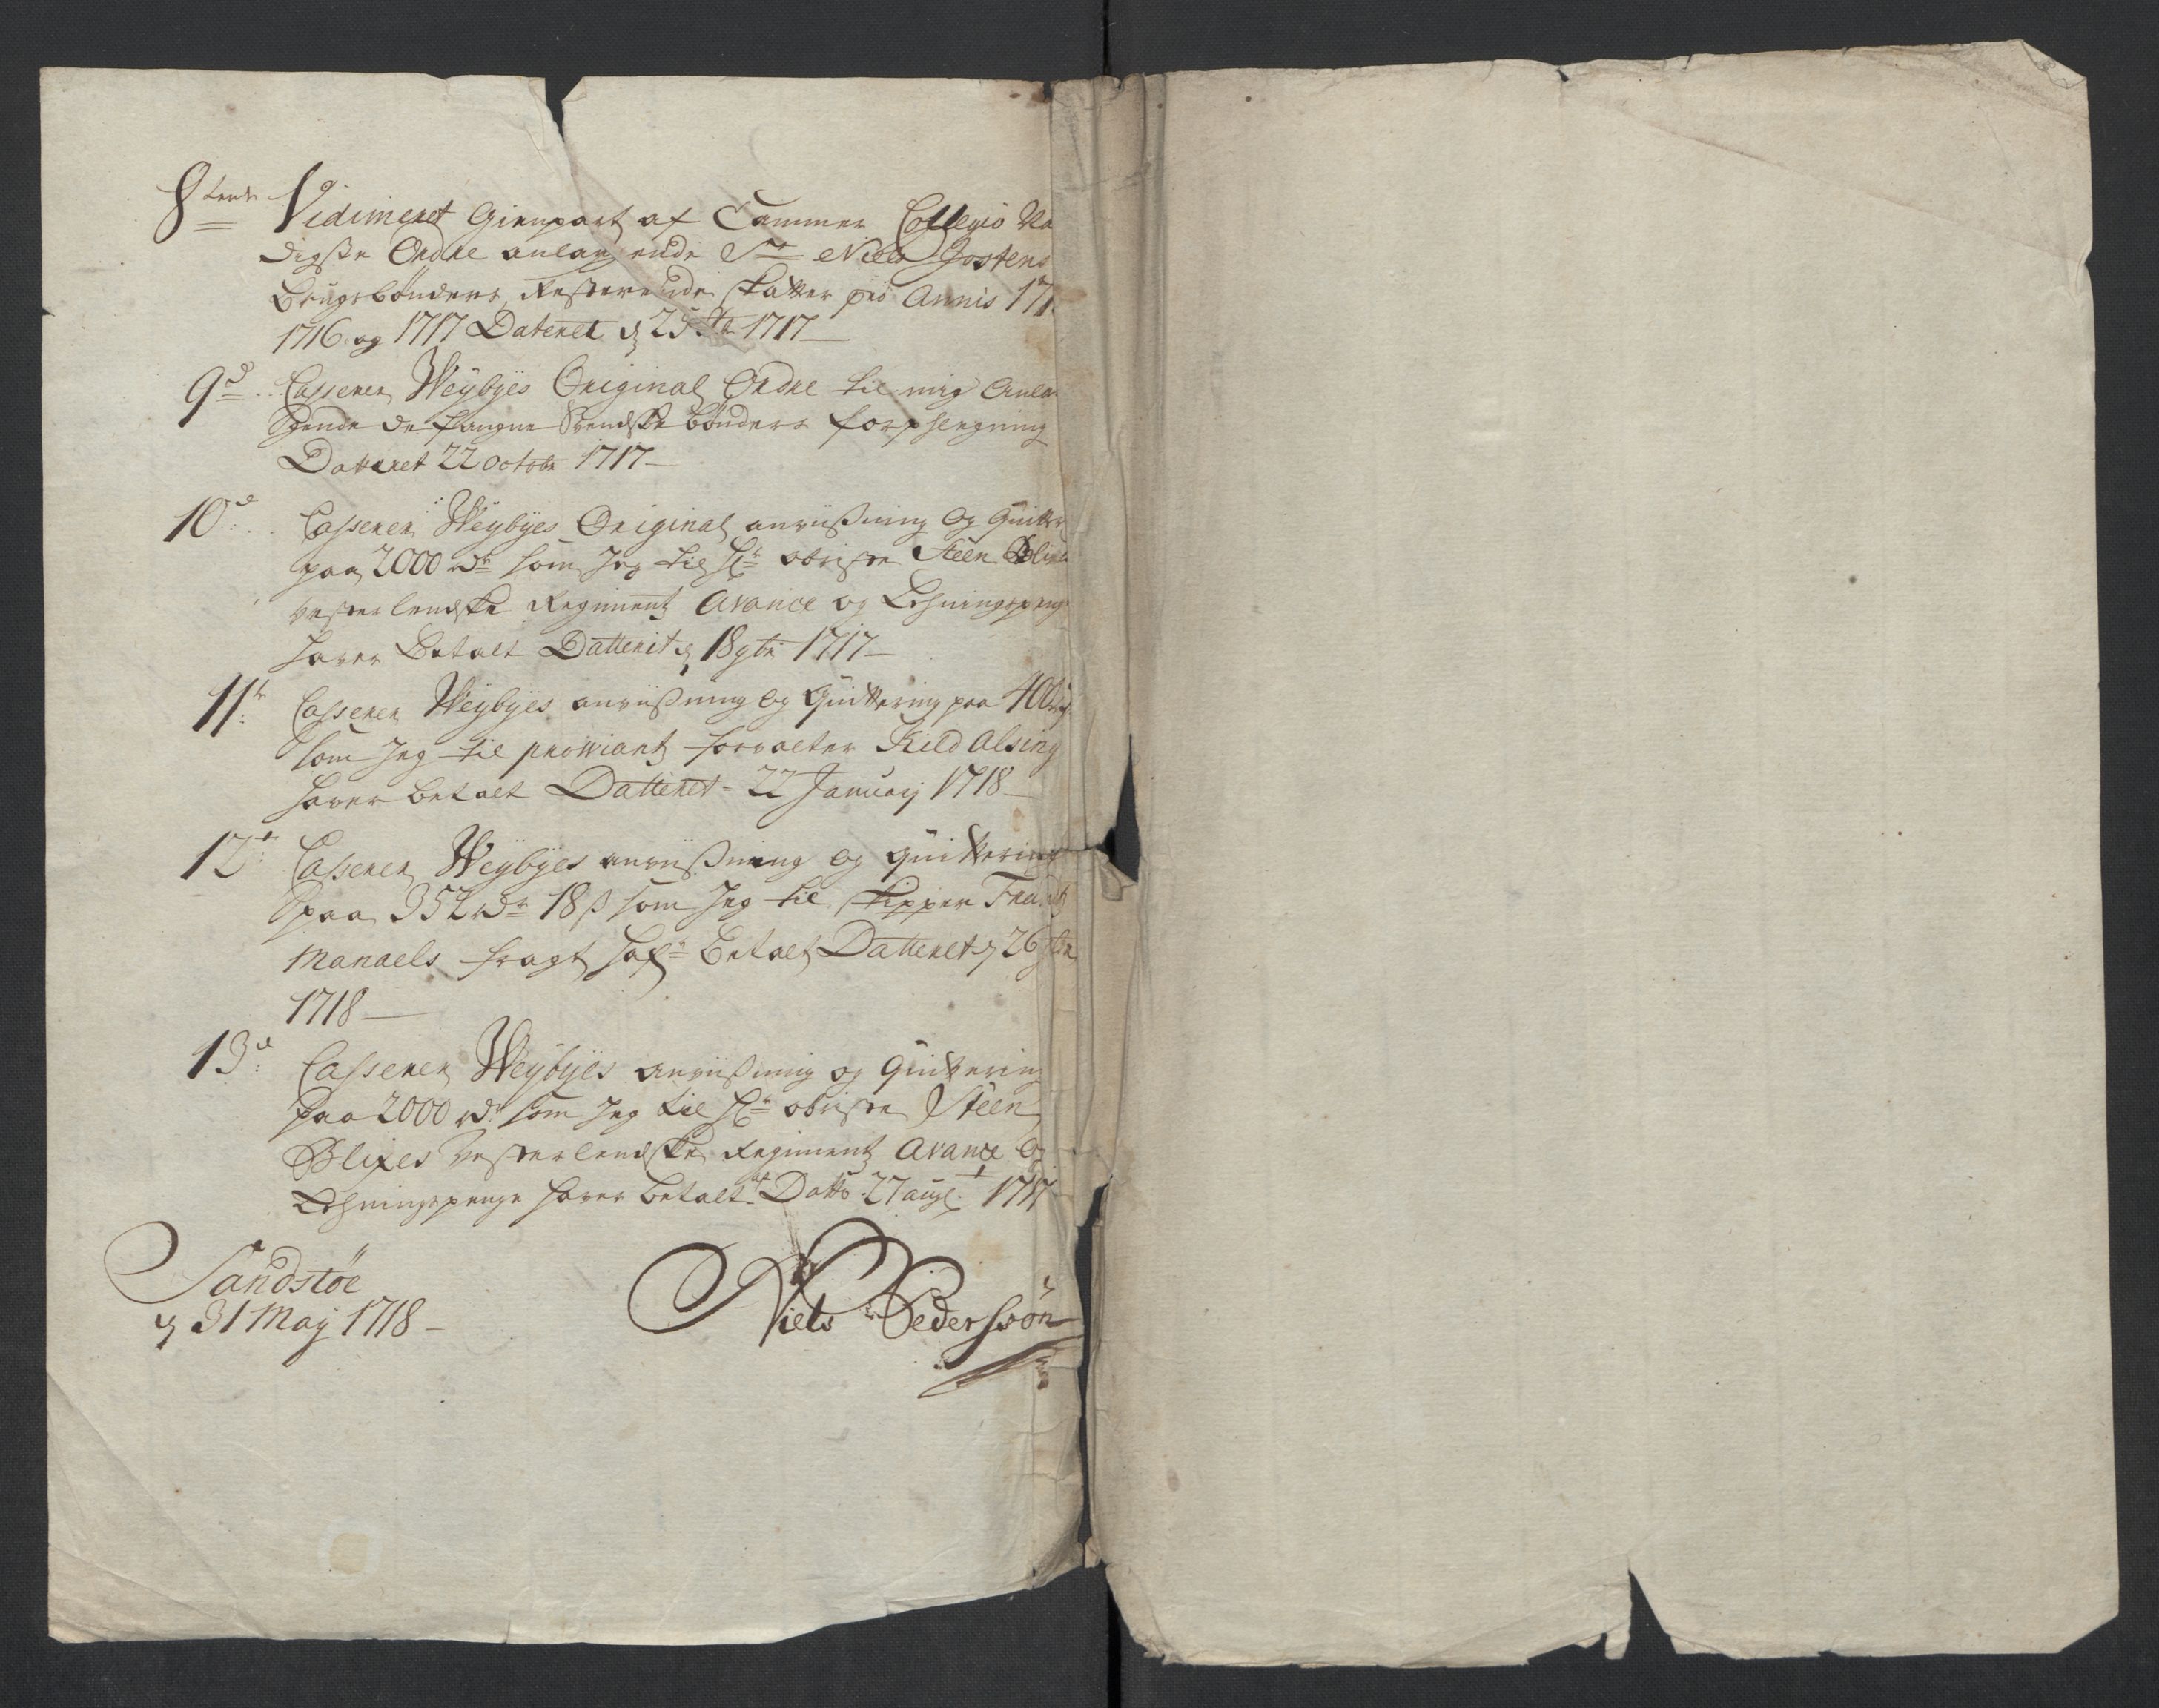 8tende Vidimeret Gienpart af Cammer Collegio Na
digste Ordre anlangende Sr Niels Jostens
Brugsbønders Resterende skatter pro Annis 171
1716 og 1717 Dateret d 25 1717
9d Casserer Weybyes Original Ordre til mig Anla
gende de fangne Svendske bønders forpflegning
Datteret 22 Octobr 1717
10d Casserer Weybyes Original anviisning Og Quitter
paa 2000 rdr som Jeg til Hr obriste Steen Blixe
vesterlendske Regiment Avance og Lehningspeng
haver Betalt Datterit d 18 9br 1717
11te Casserer Weybyes anviisning og Quittering paa 400 rd
som Jeg til proviant forvalter Kild Alsing
haver betalt Datteret 22 January 1718
12te Casserer Weybyes anviisning og quittering
paa 352 rdr 18 s som Jeg til skipper
Manaels fragt hafr Betalt Datteret d 26
1718
13d Casserer Weybyes anviisning og Quittering
paa 2000 rd som Jeg til Hr obriste Steen
Blixes Vesterlendske Regiment Avance og
Lehningspenge haver betalt Datto 27 aug 1717
Sandstøe
d 31 May 1718
Niels Pedersøn